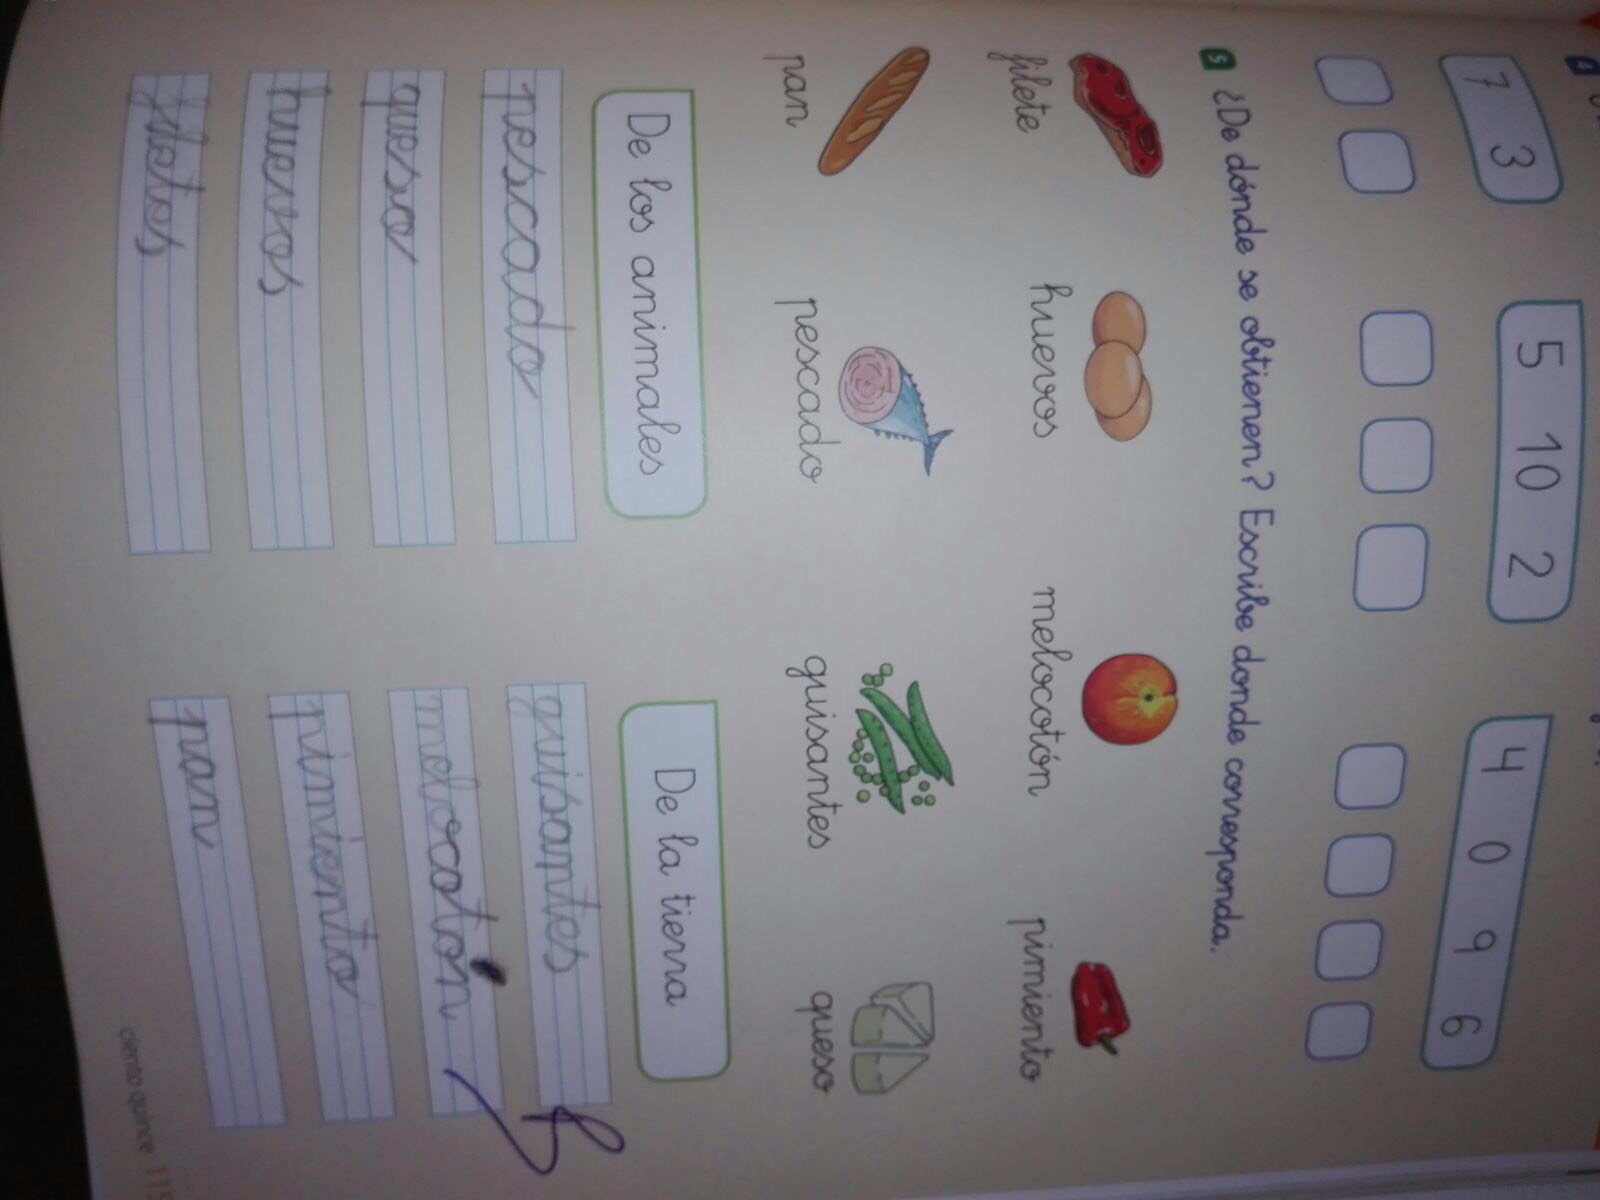 4
7 3
5 10 2
4 0 9 6
5 ¿De dónde se obtienen? Escribe donde corresponda.
filete huevos melocotón pimiento
pan pescado guisantes queso
De los animales
De la tierra
pescado
guisantes
queso
melocotón
huevos
pimiento
pan
ciento quince 115